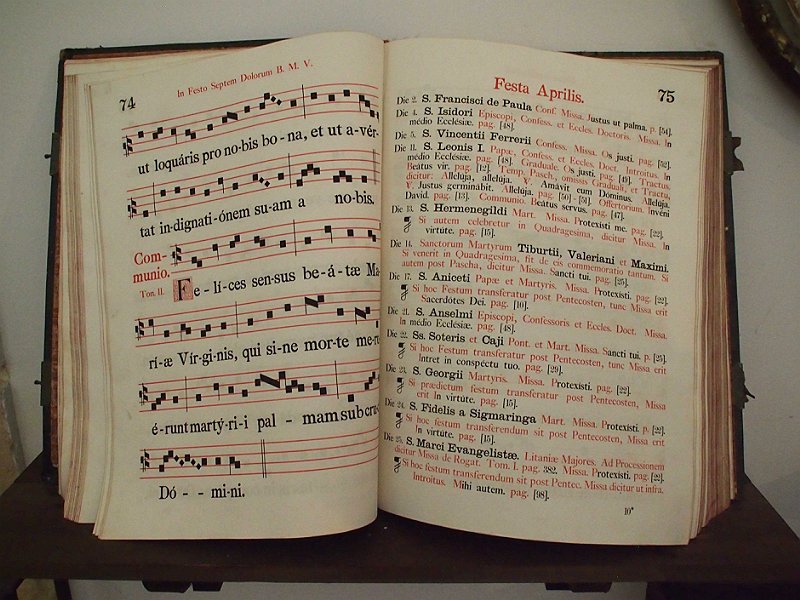 74
In Festo Septem Dolorum B. M. V.
ut loquáris pro no-bis bo-na, et ut a-vér-
tat in-dignati-ónem su-am a no-bis.
Com-
munio.
Ton. II.
Fe-lí-ces sen-sus be-á-tæ Ma
rí-æ Vír-gi-nis, qui si-ne mor-te me-ru
é-runt martý-ri-i pal - mam sub cru
Dó - - mi-ni.
Festa Aprilis.
75
Die 2. S. Francisci de Paula Conf. Missa. Justus ut palma. p. [54].
Die 4. S. Isidori Episcopi, Confess. et Eccles. Doctoris. Missa. In
médio Ecclésiæ. pag. [48].
Die 5. S. Vincentii Ferrerii Confess. Missa. Os justi. pag. [52].
Die 11. S. Leonis I. Papæ, Confess. et Eccles. Doct. Introitus. In
médio Ecclésiæ. pag. [48]. Graduale. Os justi. pag. [49]. Tractus.
Beátus vir. pag. [12]. Temp. Pasch., omissis Graduali, et Tractu,
dicitur: Allelúja, allelúja. V. Amávit eum Dóminus. Allelúja.
V. Justus germinábit. Allelúja. pag. [50]-[51]. Offertorium. Invéni
David. pag. [13]. Communio. Beátus servus. pag. [47].
Die 13. S. Hermenegildi Mart. Missa. Protexísti me. pag. [22].
Si autem celebretur in Quadragesima, dicitur Missa. In
virtúte. pag. [15].
Die 14. Sanctorum Martyrum Tiburtii, Valeriani et Maximi.
Si venerit in Quadragesima, fit de eis commemoratio tantum. Si
autem post Pascha, dicitur Missa. Sancti tui. pag. [25].
Die 17. S. Aniceti Papæ et Martyris. Missa. Protexísti. pag. [22].
Si hoc Festum transferatur post Pentecosten, tunc Missa erit
Sacerdótes Dei. pag. [10].
Die 21. S. Anselmi Episcopi, Confessoris et Eccles. Doct. Missa.
In médio Ecclésiæ. pag. [48].
Die 22. Ss. Soteris et Caji Pont. et Mart. Missa. Sancti tui. p. [25].
Si hoc Festum transferatur post Pentecosten, tunc Missa erit
Intret in conspéctu tuo. pag. [29].
Die 23. S. Georgii Martyris. Missa. Protexísti. pag. [22].
Si prædictum festum transferatur post Pentecosten, Missa
erit In virtúte. pag. [15].
Die 24. S. Fidelis a Sigmaringa Mart. Missa. Protexísti. p. [22].
Si hoc festum transferendum sit post Pentecosten, Missa erit
In virtúte. pag. [15].
Die 25. S. Marci Evangelistæ. Litaniæ Majores. Ad Processionem
dicitur Missa de Rogat. Tom. I. pag. 382. Missa. Protexísti. pag. [22].
Si hoc festum transferendum sit post Pentec. Missa dicitur ut infra.
Introitus. Mihi autem. pag. [98].
10*